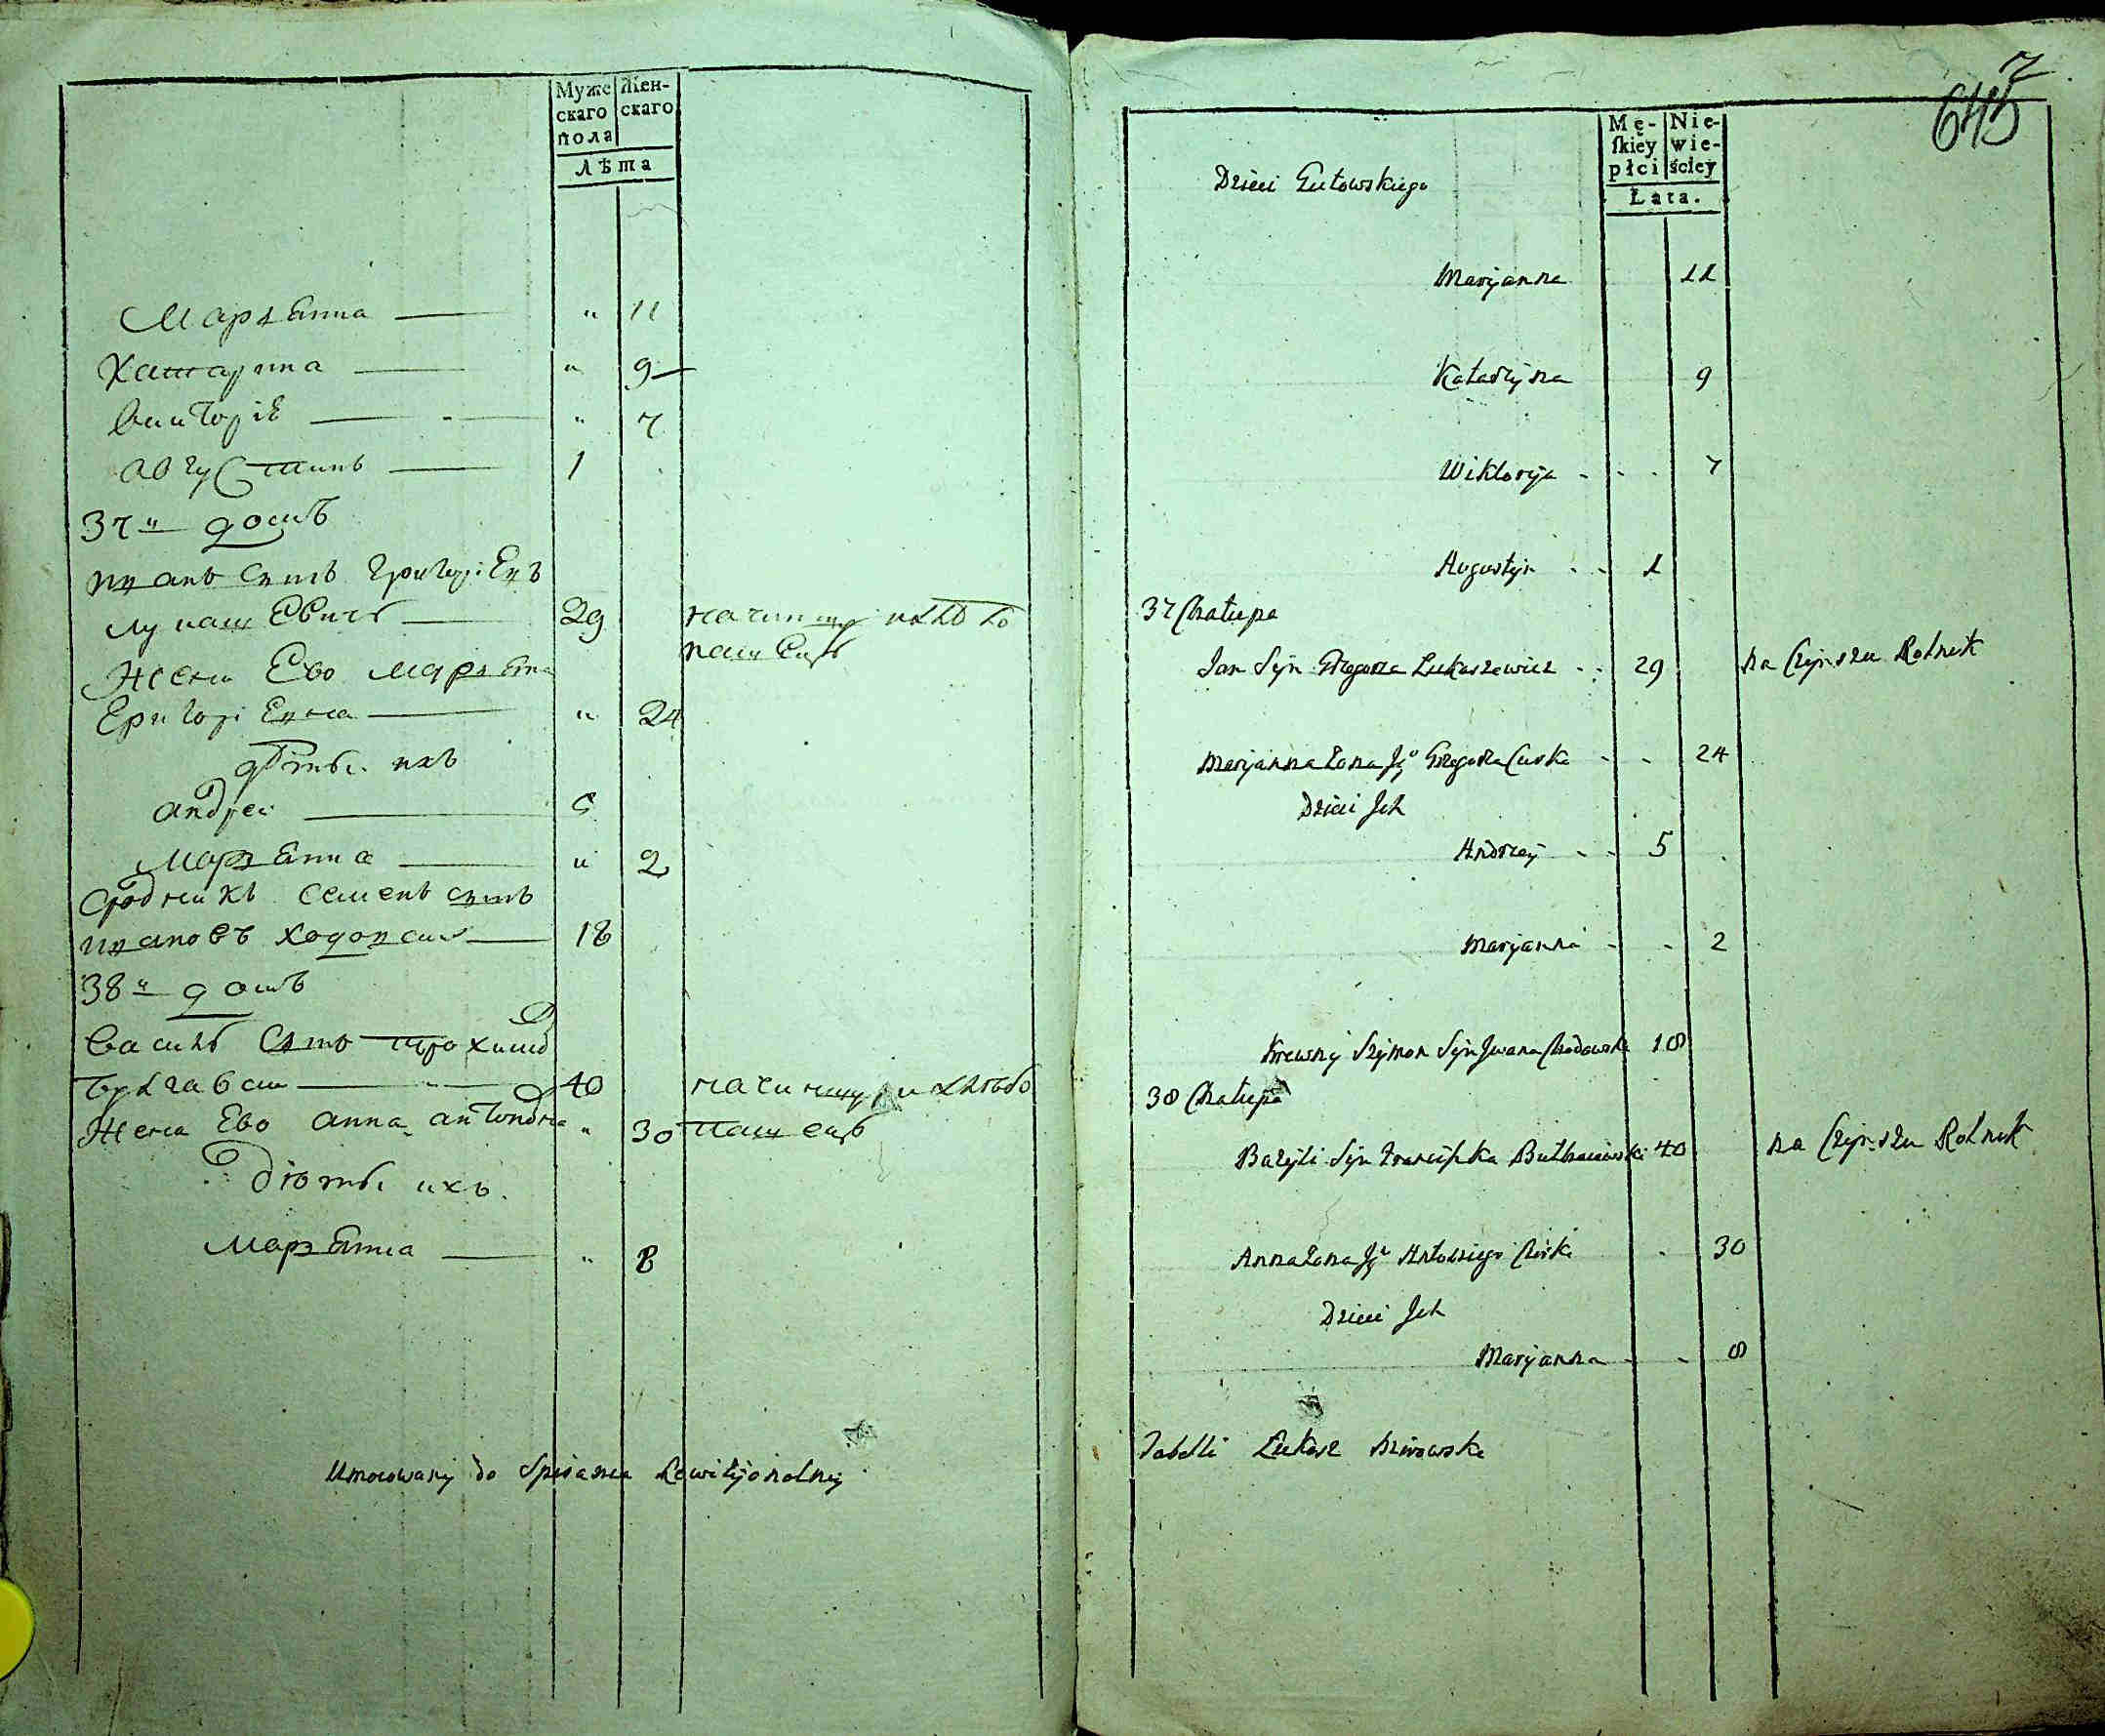 Муже Жен-
скаго скаго
пола
Лѣта
Марянна — " 11
Катарина — " 9
Викторіе — " 7
Августинъ — 1
37й домъ
Иванъ Сынъ Григоріевъ
Лукашевичъ — 29
Жена Ево Марянна
Григоріевна — " 24
дѣти ихъ
Андреи — 5
Марянна — " 2
Сродникъ Семенъ сынъ
Ивановъ Ходовски — 18
38й домъ
Василь Сынъ
— 40
Жена Ево Анна Антонова " 30
Дѣти ихъ
Марянна — " 8
Umocowany do Spisania Rewizyjonalney
645
7
Mę- Nie-
ſkiey wie-
płci ściey
Lata.
Dzieci Gutowskiego
Maryanna 11
Katarzyna 9
Wiktorya - - - 7
Augustyn - - 1
37 Chałupa
Jan Syn Grzegorza Łukaszewicz - - 29 na Czynszu Rolnik
Maryanna Żona Jgo Grzegorza Curka - - 24
Dzieci Jch
Andrzey - - 5
Maryanna - - 2
Krewny Szymon Syn Jwana Chodowski 18
38 Chałupa
Bazyli Syn Franciszka 40 na Czynszu Rolnik
Anna Żona Jgo Antoniego Córka - 30
Dzieci Jch
Maryanna - - 8
Tabelli Łukasz